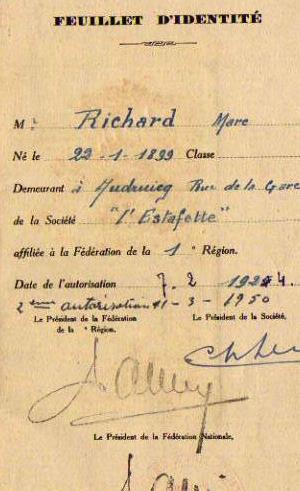 FEUILLET D'IDENTITÉ
M : Richard Marc
Né le 22-1-1899 Classe
Demeurant à Audruicq Rue de la Gare
de la Société "l'Estafette"
affiliée à la Fédération de la 1e Région.
Date de l'autorisation 7. 2 1924.
2ème autorisation 11-3-1950
Le Président de la Fédération de la e Région.
Le Président de la Société,
Le Président de la Fédération Nationale,